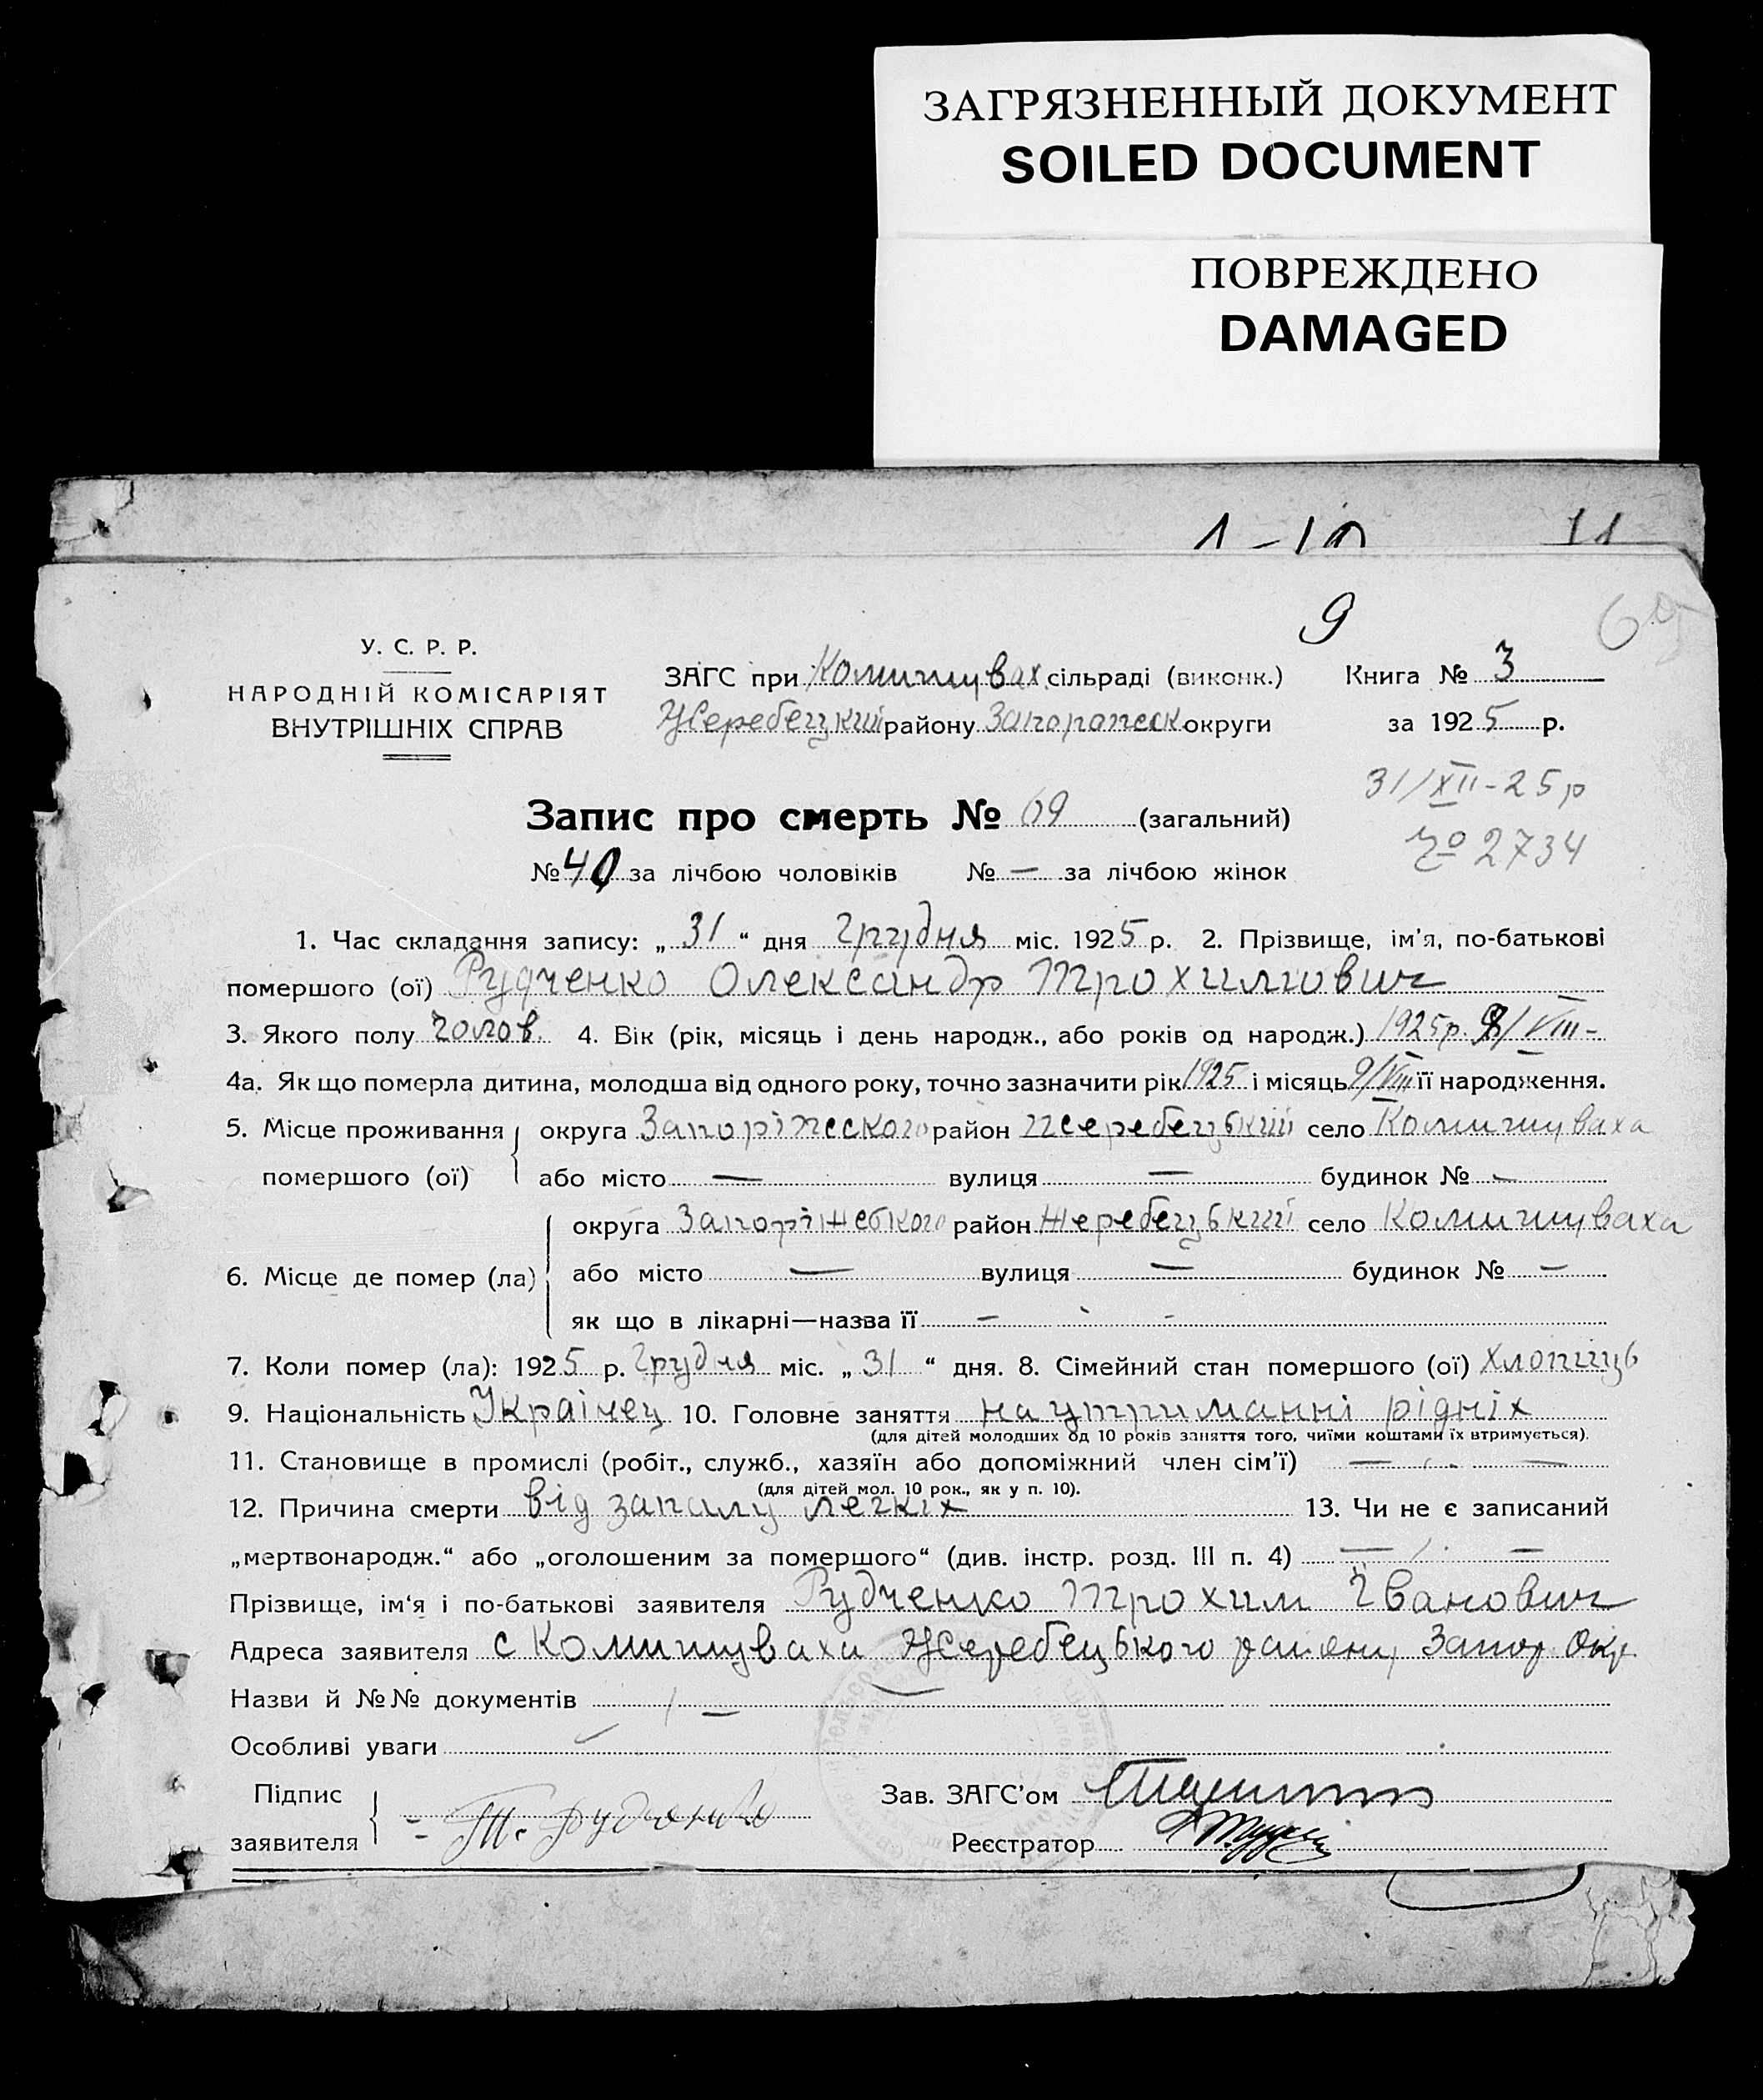 ЗАГРЯЗНЕННЫЙ ДОКУМЕНТ
SOILED DOCUMENT
ПОВРЕЖДЕНО
DAMAGED
1-10 11
9 69
У. С. Р. Р.
НАРОДНІЙ КОМІСАРІЯТ
ВНУТРІШНІХ СПРАВ
ЗАГС при Комишувах. сільраді (виконк.) Книга № 3
Жеребецький району Запорожск округи за 1925 р.
31/XII-25р
2734
Запис про смерть № 69 (загальний)
№ 40 за лічбою чоловіків № — за лічбою жінок
1. Час складання запису: „ 31 “ дня Грудня міс. 1925 р. 2. Прізвище, ім'я, по-батькові
помершого (ої) Рудченко Олександр Трохимович
3. Якого полу чолов. 4. Вік (рік, місяць і день народж., або років од народж.) 1925р. 9/VIII-
4а. Як що померла дитина, молодша від одного року, точно зазначити рік 1925 і місяць 9/VIII її народження.
5. Місце проживання округа Запоріжского район жеребецький село Комишуваха
помершого (ої) або місто — вулиця — будинок № —
округа Запоріжського район Жеребецький село Комишуваха
6. Місце де помер (ла) або місто — вулиця — будинок № —
як що в лікарні—назва її —
7. Коли помер (ла): 1925 р. Грудня міс. „ 31 “ дня. 8. Сімейний стан помершого (ої) Хлопиць
9. Національність Українец 10. Головне заняття на утриманні рідніх
(для дітей молодших од 10 років заняття того, чиїми коштами їх втримується).
11. Становище в промислі (робіт., служб., хазяїн або допоміжний член сім'ї) — —
(для дітей мол. 10 рок., як у п. 10).
12. Причина смерти від запалу легкіх 13. Чи не є записаний
„мертвонародж.“ або „оголошеним за помершого“ (див. інстр. розд. III п. 4) — —
Прізвище, ім'я і по-батькові заявителя Рудченко Трохим Іванович
Адреса заявителя с Комишуваха Жеребецького району Запор. Окр.
Назви й №№ документів —
Особливі уваги
Підпис
заявителя Т. Рудченко
Зав. ЗАГС'ом
Реєстратор